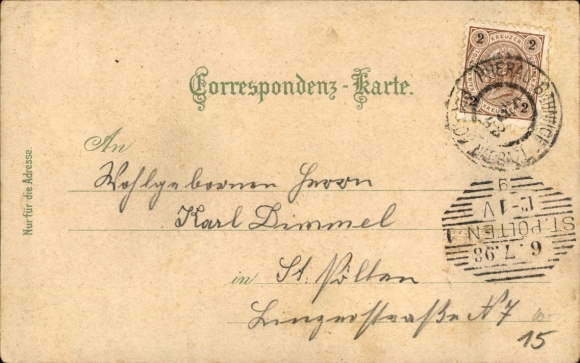 Correspondenz-Karte.
An
Wohlgebornen Herrn
Karl Dimmel
in St. Pölten
Linzerstraße N 7
15
Nur für die Adresse.
2 KREUZER 2
2 2
ST. PÖLTEN 1
6.7.98
9